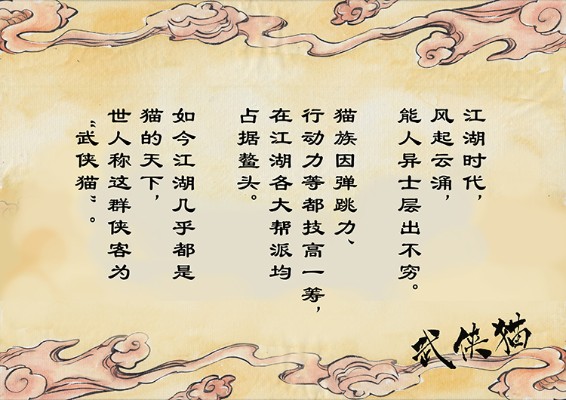 江湖时代，
风起云涌，
能人异士层出不穷。
猫族因弹跳力、
行动力等都技高一筹，
在江湖各大帮派均
占据鳌头。
如今江湖几乎都是
猫的天下，
世人称这群侠客为
“武侠猫”。
武侠猫